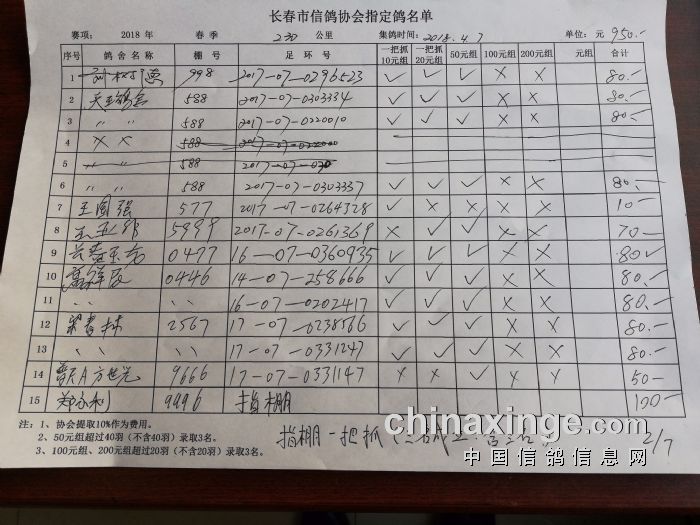 长春市信鸽协会指定鸽名单
赛项: 2018 年 春 季 230 公里 集鸽时间: 2018.4.7 单位: 元 950.-
序号 鸽 舍 名 称 棚 号 足 环 号 一把抓10元组 一把抓20元组 50元组 100元组 200元组 元组 合计
1 998 2017-07-0296523 ✓ ✓ ✓ × × 80.-
2 588 2017-07-0303334 ✓ ✓ ✓ × × 80.-
3 〃 〃 588 2017-07-0220010 ✓ ✓ ✓ × × 80.-
4 × × 588
5 〃 〃 588
6 〃 〃 588 2017-07-0303337 ✓ ✓ ✓ × × 80.-
7 王国强 577 2017-07-0264328 ✓ × × × × 10-
8 5999 2017-07-0261369 × ✓ ✓ × × 70-
9 0477 16-07-0360935 ✓ ✓ ✓ × × 80
10 0446 14-07-258666 ✓ ✓ ✓ × × 80.-
11 〃 〃 16-07-0202417 ✓ ✓ ✓ × × 80.-
12 2567 17-07-0238566 ✓ ✓ ✓ × × 80.-
13 〃 〃 17-07-0331247 ✓ ✓ ✓ × × 80.-
14 9666 17-07-0331147 × × ✓ × × 50-
15 郑永利 9996 指棚 100-
注: 1、协会提取10%作为费用。
2、50元组超过40羽(不含40羽)录取3名。
3、100元组、200元组超过20羽(不含20羽)录取3名。
指棚一把抓
2/7
chinaxinge.com
中国信鸽信息网